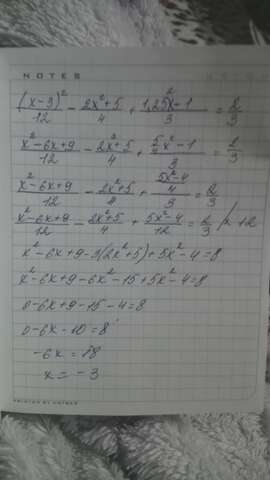 NOTES
(x-3)²/12 - 2x²+5/4 + 1,25x²-1/3 = 2/3
x²-6x+9/12 - 2x²+5/4 + 5/4x²-1/3 = 2/3
x²-6x+9/12 - 2x²+5/4 + 5x²-4/4/3 = 2/3
x²-6x+9/12 - 2x²+5/4 + 5x²-4/12 = 2/3 /×12
x²-6x+9-3(2x²+5)+5x²-4=8
x²-6x+9-6x²-15+5x²-4=8
0-6x+9-15-4=8
0-6x-10=8
-6x=18
x=-3